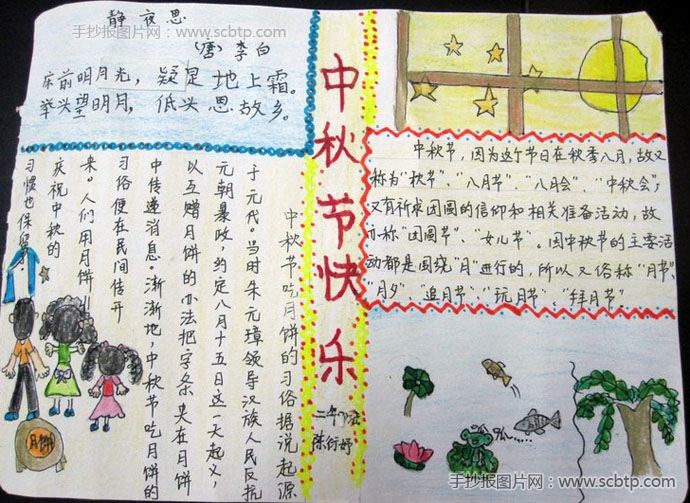 静夜思
(唐)李白
床前明月光，疑是地上霜。
举头望明月，低头思故乡。
手抄报图片网：www.scbtp.com
中秋节快乐
二年
陈
中秋节，因为这个节日在秋季八月，故又
称为“秋节”、“八月节”、“八月会”、“中秋会”；
又有祈求团圆的信仰和相关准备活动，故
亦称“团圆节”、“女儿节”。因中秋节的主要活
动都是围绕“月”进行的，所以又俗称“月节”、
“月夕”追月节”、“玩月节”、“拜月节”。
中秋节吃月饼的习俗据说起源
于元代。当时朱元璋领导汉族人民反抗
元朝暴政，约定八月十五日这一天起义，
以互赠月饼的办法把字条夹在月饼
中传递消息。渐渐地，中秋节吃月饼的
习俗便在民间传开
来。人们用月饼
庆祝中秋的
习惯也保
月饼
手抄报图片网：www.scbtp.com